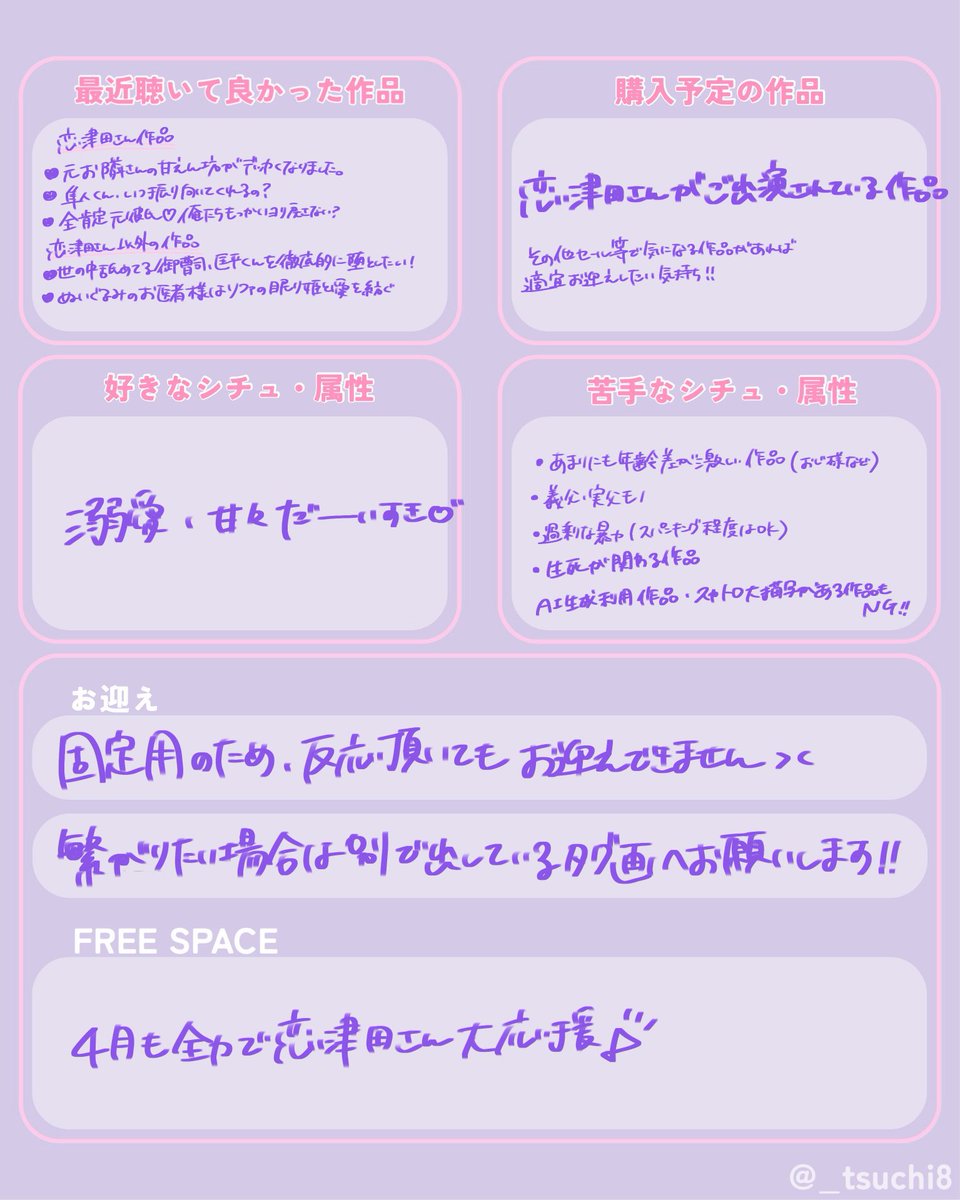 最近聴いて良かった作品
恋津田さん作品
●元お隣さんの甘えん坊がデッカくなりました。
●隼人くん、いつ振り向いてくれるの?
●全肯定元彼氏♡俺たちもっかいヨリ戻さない?
恋津田さん以外の作品
●世の中舐めてる御曹司、匡平くんを徹底的に堕としたい!
●ぬいぐるみのお医者様はソファの眠り姫と愛を紡ぐ
購入予定の作品
恋津田さんがご出演されている作品
その他セール等で気になる作品があれば
適宜お迎えしたい気持ち!!
好きなシチュ・属性
溺愛、甘々だーーいすき♡
苦手なシチュ・属性
・あまりにも年齢差が激しい作品(おじ様など)
・義父・実父もの
・過剰な暴力(スパンキング程度はOK)
・生死が関わる作品
AI生成利用作品・スカトロ大描写がある作品も
NG!!
お迎え
固定用のため、反応頂いてもお迎えできません><
繋がりたい場合は別で出しているタグ画へお願いします!!
FREE SPACE
4月も全力で恋津田さん大応援♪
@_tsuchi8